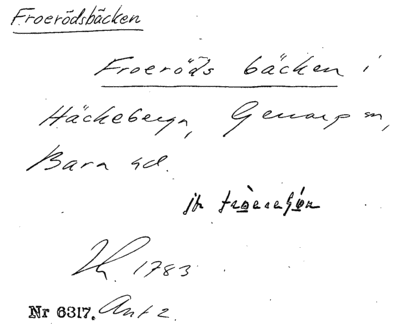 Froerödsbäcken
Froeröds bäcken i
Häckeberga, Genarp sn,
Bara hd.
jfr
1783
Nr 6317. Ant 2